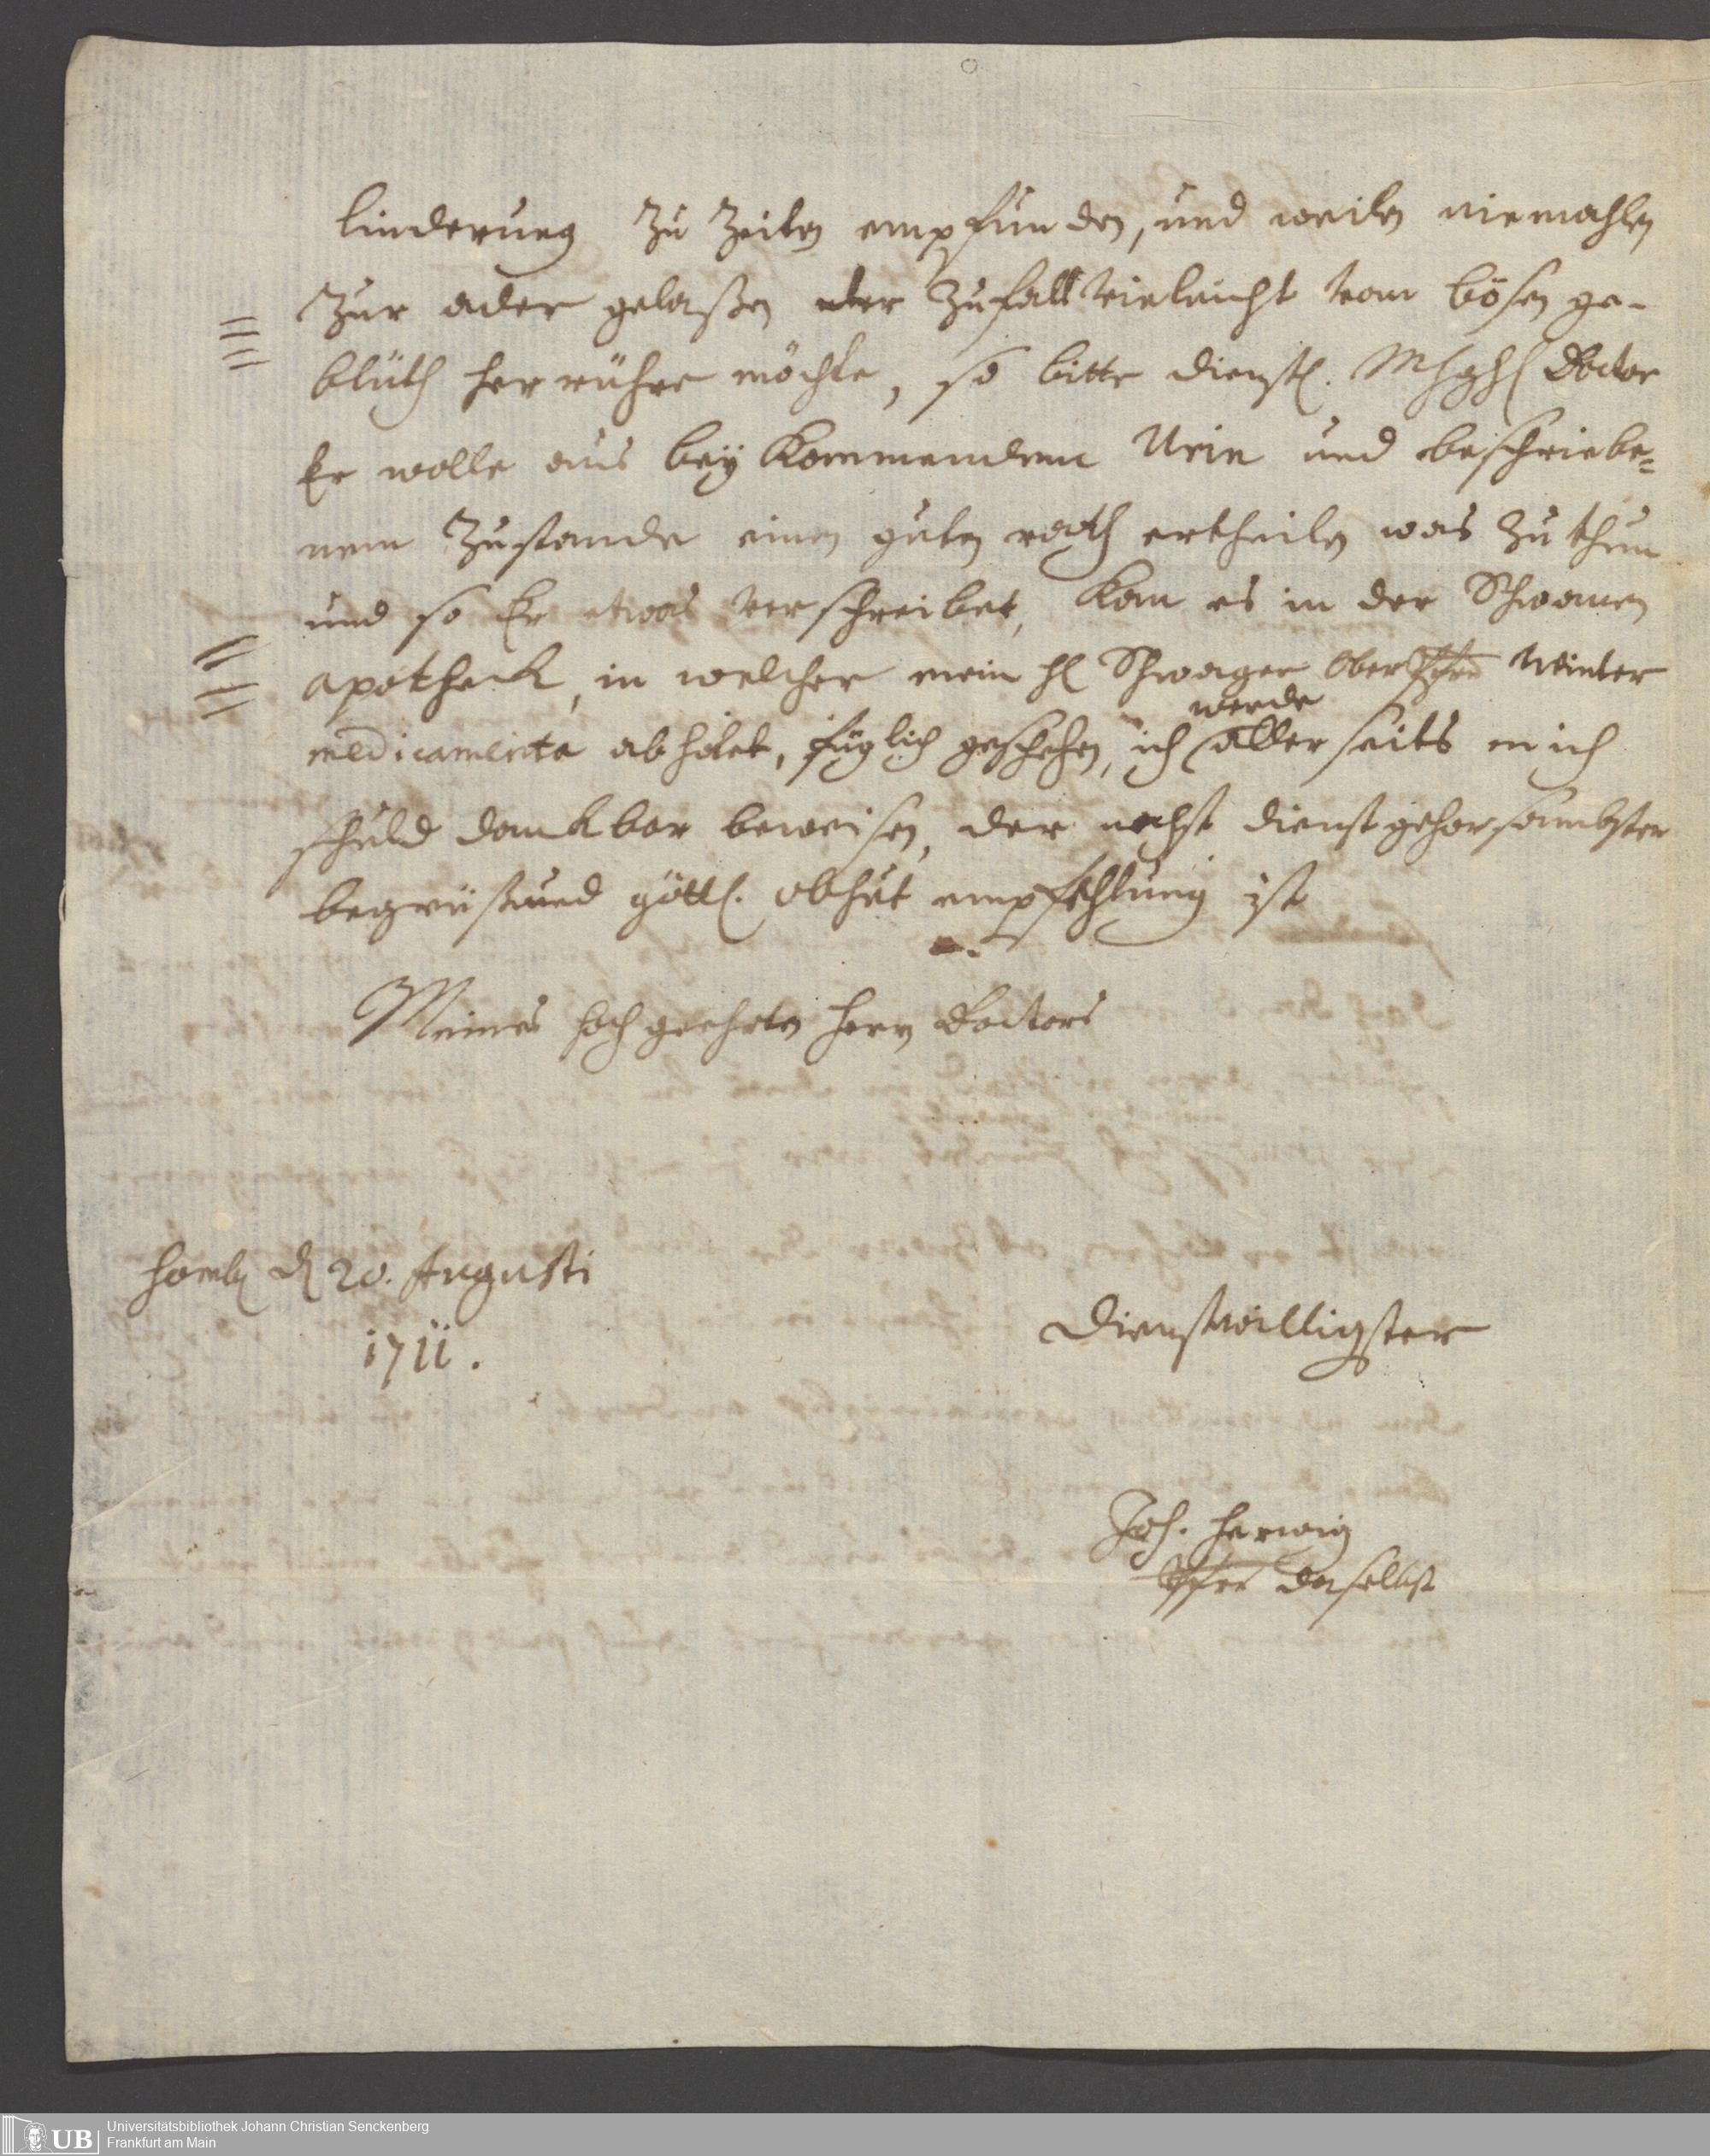 linderung zu Zeiten empfunden, und weilen niemahlen
zur ader gelaßen der Zufall vieleicht vom bösen ge-
blüth herrühre möchte, so bitte dienstl. MhghH Doctor
Er wolle aus beÿ Kommendem Urin und beschriebe-
nem Zustande einen guten rath ertheilen was zu thun
und so Er etwas verschreibet, Kan es in der Schwanen
apotheck, in welcher mein H Schwager Ober Winter
medicamenta abholet, füglich geschehen, ich werde allerseits mich
schuld danckbar beweisen, der nechst dienstgehorsambster
begrüßund göttl. obhut empfehlung ist
Meines hochgeehrten Herrn Doctors
Homb d 20. Augusti
1711.
Dienstwilligster
Joh. Herwig
Pfrr daselbst
UB
Universitätsbibliothek Johann Christian Senckenberg
Frankfurt am Main